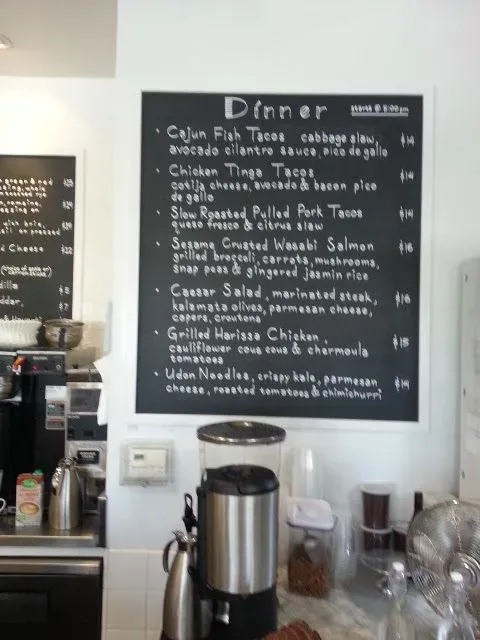 Dinner starts @ 5:00pm
• Cajun Fish Tacos cabbage slaw, $14
avocado cilantro sauce, pico de gallo
• Chicken Tinga Tacos $14
cotija cheese, avocado & bacon pico
de gallo
• Slow Roasted Pulled Pork Tacos $14
queso fresco & citrus slaw
• Sesame Crusted Wasabi Salmon $16
grilled broccoli, carrots, mushrooms,
snap peas & gingered jasmin rice
• Caesar Salad, marinated steak, $16
kalamata olives, parmesan cheese,
capers, croutons
• Grilled Harissa Chicken, $15
cauliflower cous cous & chermoula
tomatoes
• Udon Noodles, crispy kale, parmesan $14
cheese, roasted tomatoes & chimichurri
green & red
whole
romaine,
with brie,
on pressed
d Cheese
(choice of
dilla
dar,